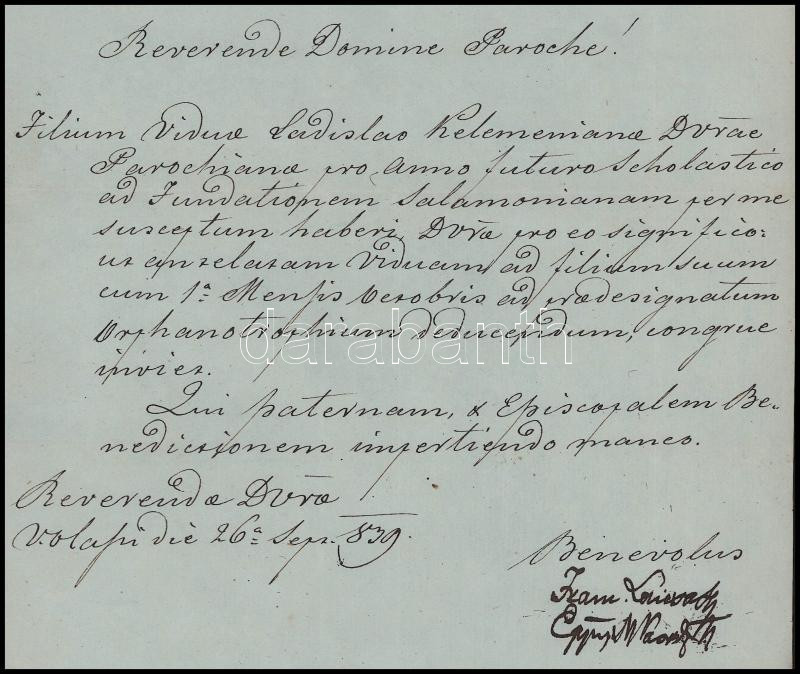 Reverende Domine Paroche!
Filium Viduæ Ladislao Kelemenianæ Dvræ
Parochianæ pro anno futuro Scholastico
ad Fundationem Salamonianam per me
susceptum haberi, Dvræ pro eo significo:
ut antelatam Viduam ad filium suum
cum 1ª Mensis 8etobris ad prædesignatum
Orphanotrophium deducendum, congrue
inviet.
Qui paternam, & Episcopalem Be-
nedictionem impertiendo maneo.
Reverendæ Dvræ
die 26ª Sept. 839.
Benevolus
darabanth